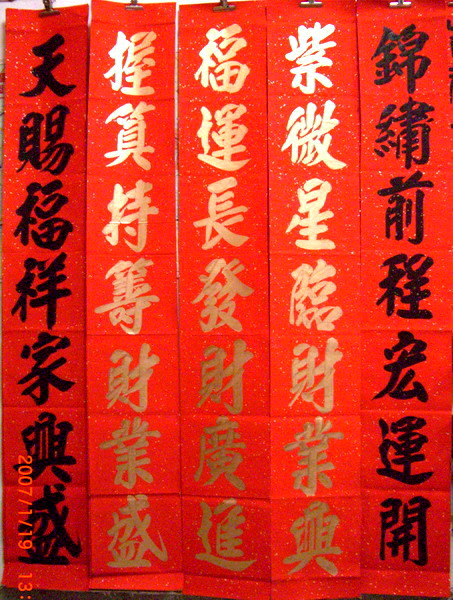 錦繡前程宏運開
紫微星臨財業興
福運長發財廣進
握算持籌財業盛
天賜福祥家興盛
2007/1/19 13: